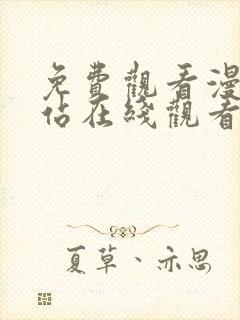 免費觀看漫
佔在綫觀看
夏草、亦思